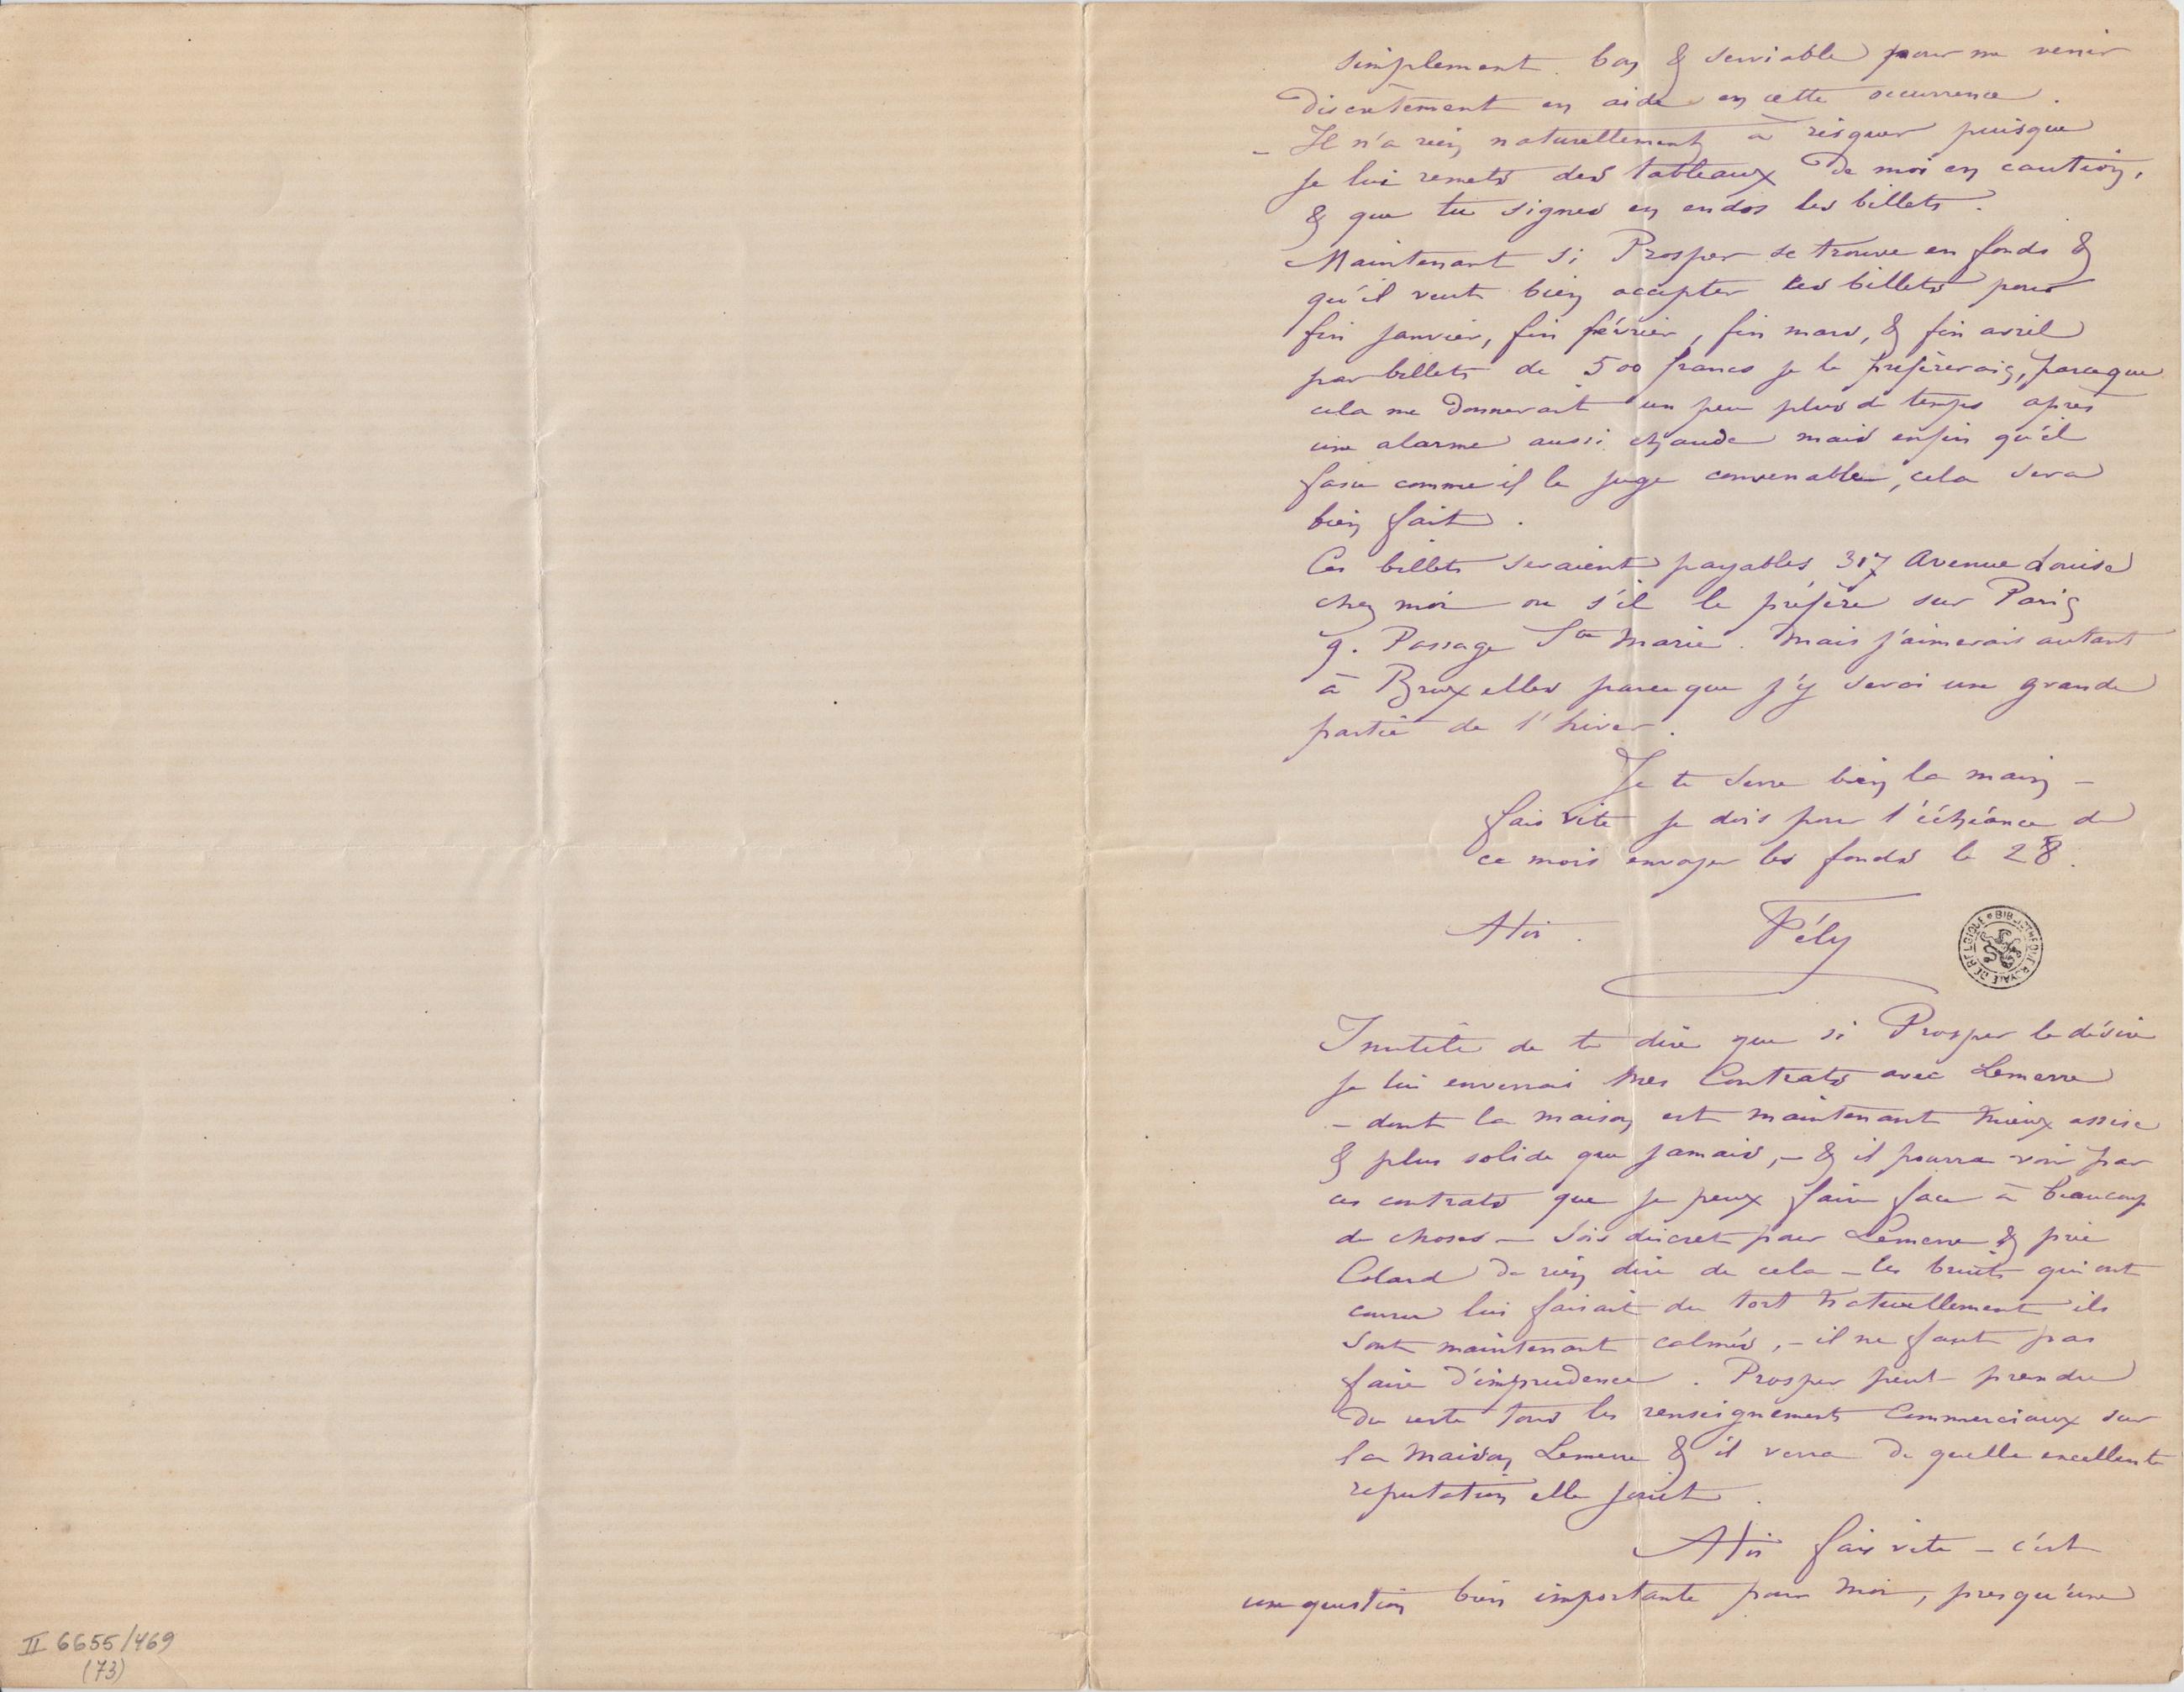 simplement bon & serviable pour me venir
discrètement en aide en cette occurrence.
– Il n'a rien naturellement à risquer puisque
je lui remets des tableaux de moi en caution,
& que tu signes en endos les billets.
Maintenant si Prosper se trouve en fonds &
qu'il veut bien accepter les billets pour
fin janvier, fin février, fin mars, & fin avril
par billets de 500 francs je le préférerais, parceque
cela me donnerait un peu plus de temps après
une alarme aussi chaude mais enfin qu'il
fasse comme il le juge convenable, cela sera
bien fait.
Ces billets seraient payables 317 Avenue Louise
chez moi ou s'il le préfère sur Paris
9. Passage Ste Marie. Mais j'aimerais autant
à Bruxelles parceque j'y serai une grande
partie de l'hiver.
Je te serre bien la main –
fais vite je dois pour l'échéance de
ce mois envoyer les fonds le 28.
A toi. Fély
BIBLIOTHEQUE ROYALE DE BELGIQUE
Inutile de te dire que si Prosper le désire
je lui enverrai mes Contrats avec Lemerre
– dont la maison est maintenant mieux assise
& plus solide que jamais, – & il pourra voir par
ces contrats que je peux faire face à beaucoup
de choses – Sois discret pour Lemerre & prie
Colard de rien dire de cela – les bruits qui ont
couru lui faisait du tort naturellement ils
sont maintenant calmés, – il ne faut pas
faire d'imprudence. Prosper peut prendre
du reste tous les renseignements Commerciaux sur
la maison Lemerre & il verra de quelle excellente
reputation elle jouit.
A toi fais vite – c'est
une question bien importante pour moi, presqu'une
II 6655/469
(73)